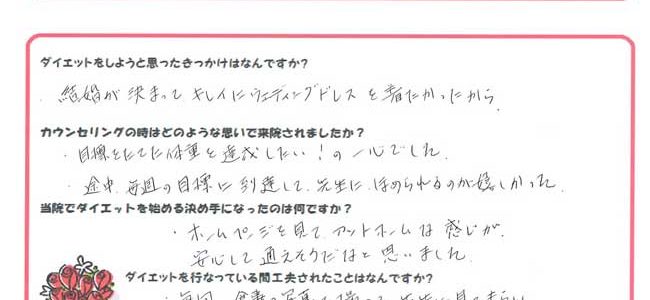 ダイエットをしようと思ったきっかけはなんですか?
・結婚が決まってキレイにウェディングドレスを着たかったから。
カウンセリングの時はどのような思いで来院されましたか?
・目標をたてた体重を達成したい!の一心でした。
・途中、毎週の目標に到達して、先生にほめられるのが嬉しかった。
当院でダイエットを始める決め手になったのは何ですか?
・ホームページを見て、アットホームな感じが、
安心して通えそうだなと思いました。
ダイエットを行なっている間工夫されたことはなんですか?
・毎回、食事の写真を撮って、先生に見てもらい